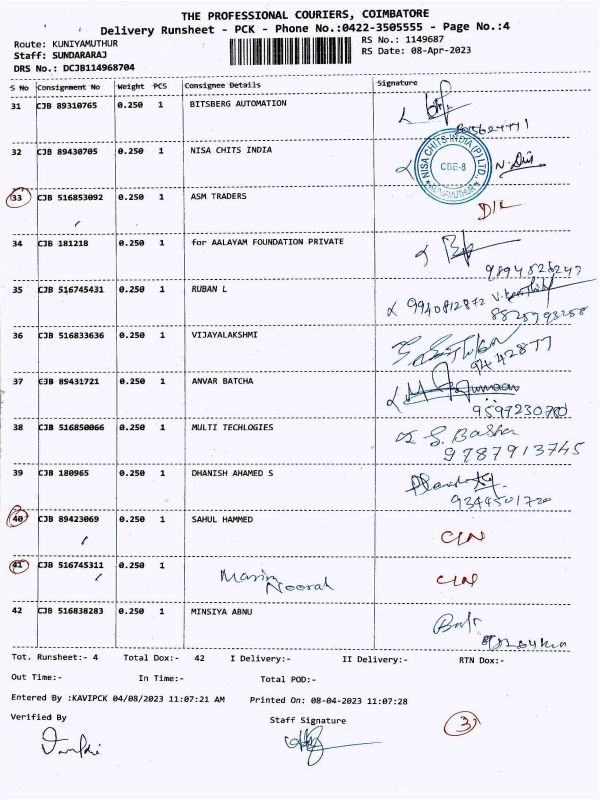 THE PROFESSIONAL COURIERS, COIMBATORE
Delivery Runsheet - PCK - Phone No.:0422-3505555 - Page No.:4
Route: KUNIYAMUTHUR RS No.: 1149687
Staff: SUNDARARAJ RS Date: 08-Apr-2023
DRS No.: DCJB114968704
S No Consignment No Weight PCS Consignee Details Signature
31 CJB 89310765 0.250 1 BITSBERG AUTOMATION
32 CJB 89430705 0.250 1 NISA CHITS INDIA
NISA CHITS INDIA (P) LTD CBE-8 KUNIAMUTHUR
33 CJB 516853092 0.250 1 ASM TRADERS D/L
34 CJB 181218 0.250 1 for AALAYAM FOUNDATION PRIVATE
9894528247
35 CJB 516745431 0.250 1 RUBAN L 9940812872
8825793258
36 CJB 516833636 0.250 1 VIJAYALAKSHMI
9442877
37 CJB 89431721 0.250 1 ANVAR BATCHA
9597230780
38 CJB 516850066 0.250 1 MULTI TECHLOGIES S. Basha
9787913745
39 CJB 180965 0.250 1 DHANISH AHAMED S
9344501720
40 CJB 89423069 0.250 1 SAHUL HAMMED C/N
41 CJB 516745311 0.250 1 Noorah C/N
42 CJB 516838283 0.250 1 MINSIYA ABNU
Tot. Runsheet:- 4 Total Dox:- 42 I Delivery:- II Delivery:- RTN Dox:-
Out Time:- In Time:- Total POD:-
Entered By :KAVIPCK 04/08/2023 11:07:21 AM Printed On: 08-04-2023 11:07:28
Verified By Staff Signature 3